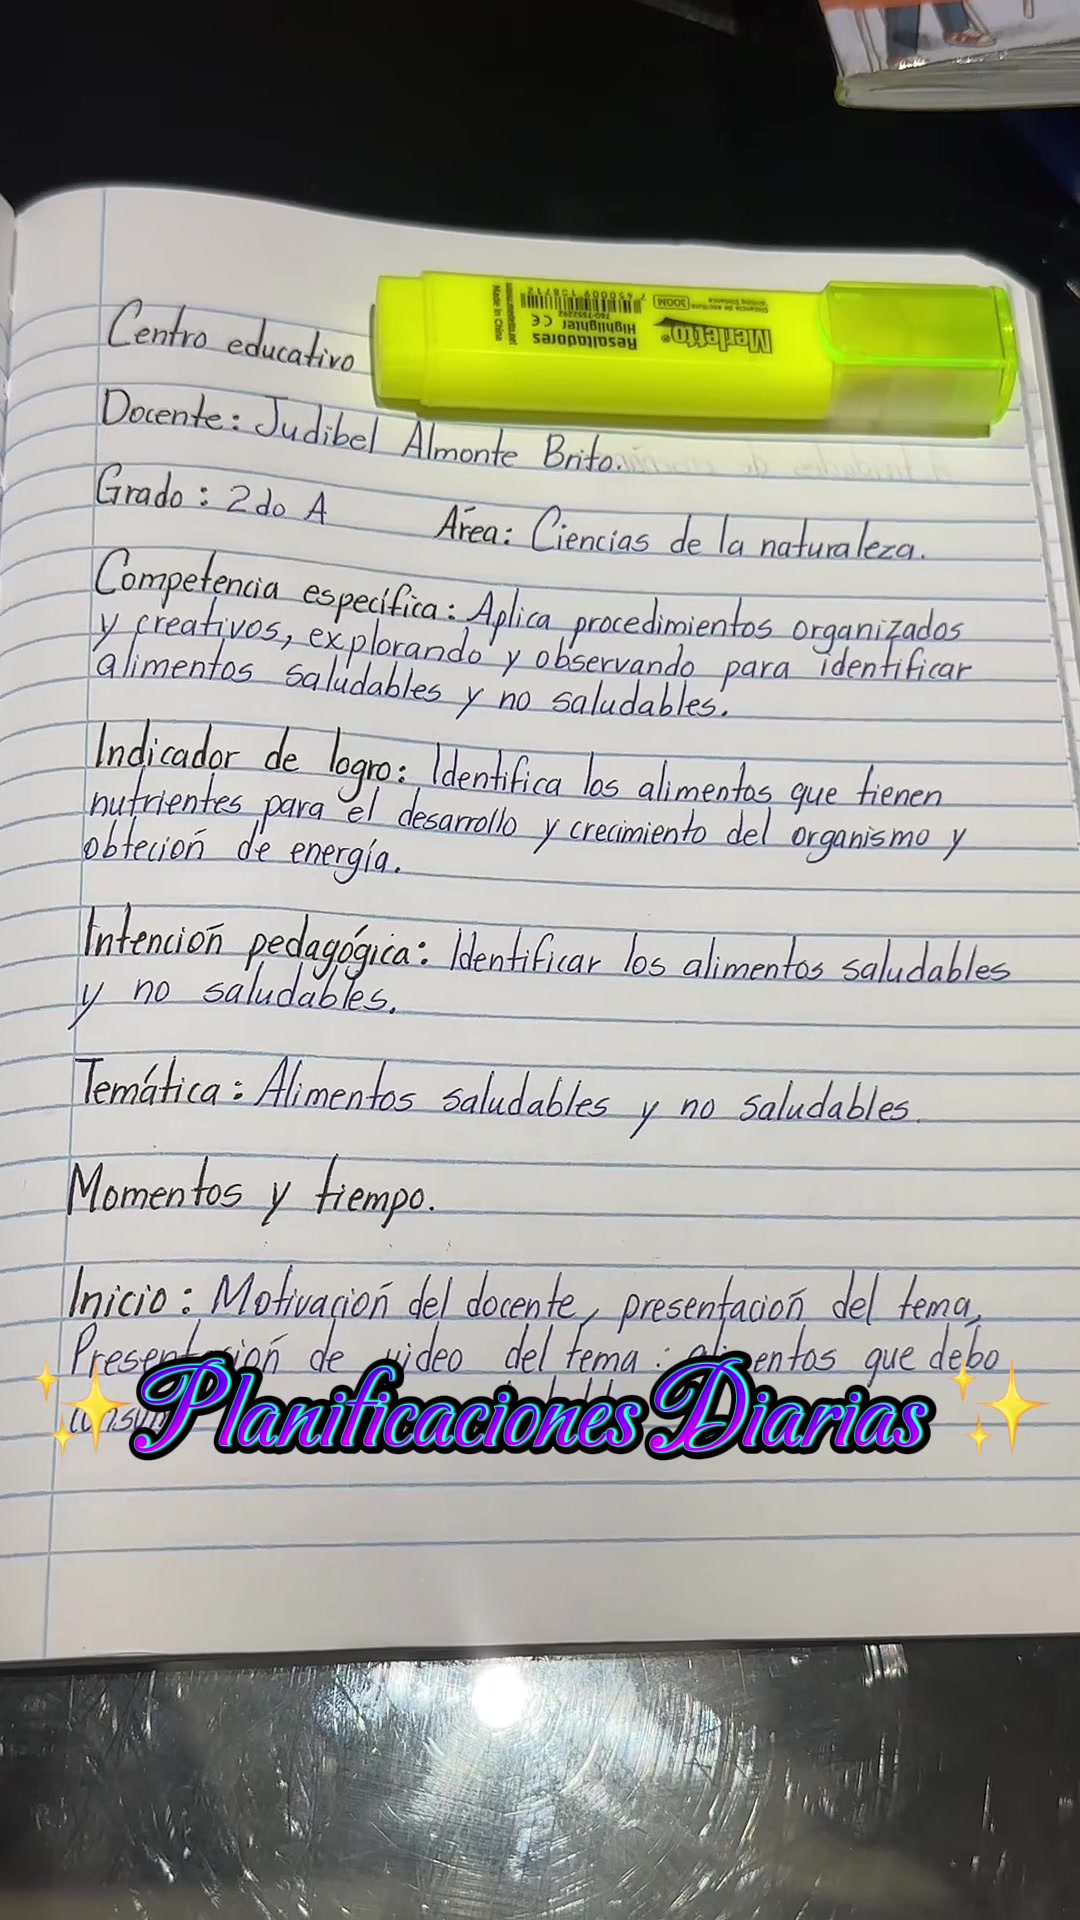 Merletto®
Resaltadores
Highlighter CE
760-7592292
7 450009 158712
Distancia de escritura
Writing Distance
300M
www.merletto.net
Made in China
Centro educativo
Docente: Judibel Almonte Brito.
Grado: 2do A Área: Ciencias de la naturaleza.
Competencia específica: Aplica procedimientos organizados
y creativos, explorando y observando para identificar
alimentos saludables y no saludables.
Indicador de logro: Identifica los alimentos que tienen
nutrientes para el desarrollo y crecimiento del organismo y
obteción de energía.
Intención pedagógica: Identificar los alimentos saludables
y no saludables.
Temática: Alimentos saludables y no saludables.
Momentos y tiempo.
Inicio: Motivación del docente, presentación del tema,
Presentación de video del tema: alimentos que debo
Planificaciones Diarias